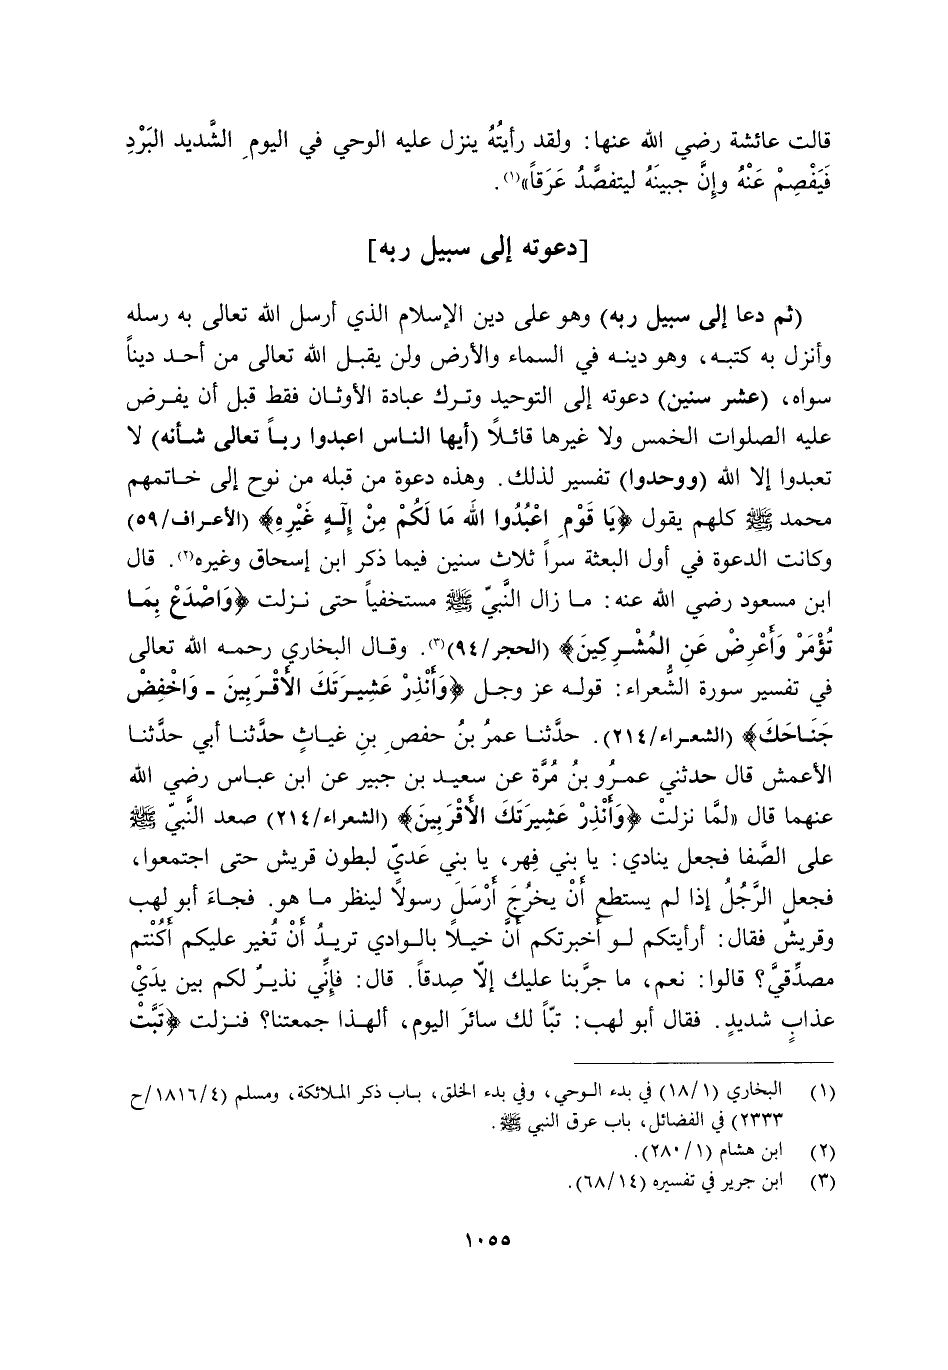 قالت عائشة رضي الله عنها: ولقد رأيتُهُ ينزل عليه الوحي في اليومِ الشَّديد البَرْدِ
فَيَفْصِمْ عَنْهُ وإِنَّ جبينَهُ ليتفصَّدُ عَرَقاً»(١).
[دعوته إلى سبيل ربه]
(ثم دعا إلى سبيل ربه) وهو على دين الإسلام الذي أرسل الله تعالى به رسله
وأنزل به كتبه، وهو دينه في السماء والأرض ولن يقبل الله تعالى من أحد ديناً
سواه، (عشر سنين) دعوته إلى التوحيد وترك عبادة الأوثان فقط قبل أن يفرض
عليه الصلوات الخمس ولا غيرها قائلاً (أيها الناس اعبدوا رباً تعالى شأنه) لا
تعبدوا إلا الله (ووحدوا) تفسير لذلك. وهذه دعوة من قبله من نوح إلى خاتمهم
محمد ﷺ كلهم يقول ﴿يَا قَوْمِ اعْبُدُوا اللهَ مَا لَكُمْ مِنْ إِلَهٍ غَيْرِهِ﴾ (الأعراف/٥٩)
وكانت الدعوة في أول البعثة سراً ثلاث سنين فيما ذكر ابن إسحاق وغيره(٢). قال
ابن مسعود رضي الله عنه: ما زال النَّبيّ ﷺ مستخفياً حتى نزلت ﴿وَاصْدَعْ بِمَا
تُؤْمَرْ وَأَعْرِضْ عَنِ المُشْرِكِينَ﴾ (الحجر/٩٤)(٣). وقال البخاري رحمه الله تعالى
في تفسير سورة الشُّعراء: قوله عز وجل ﴿وَأَنْذِرْ عَشِيرَتَكَ الأَقْرَبِينَ - وَاخْفِضْ
جَنَاحَكَ﴾ (الشعراء/٢١٤). حدَّثنا عمرُ بنُ حفصِ بنِ غياثٍ حدَّثنا أبي حدَّثنا
الأعمش قال حدثني عمرُو بنُ مُرَّة عن سعيد بن جبير عن ابن عباس رضي الله
عنهما قال «لمَّا نزلتْ ﴿وَأَنْذِرْ عَشِيرَتَكَ الأَقْرَبِينَ﴾ (الشعراء/٢١٤) صعد النَّبيّ ﷺ
على الصَّفا فجعل ينادي: يا بني فِهر، يا بني عَديّ لبطون قريش حتى اجتمعوا،
فجعل الرَّجُلُ إذا لم يستطع أَنْ يخرُجَ أَرْسَلَ رسولاً لينظر ما هو. فجاءَ أبو لهب
وقريشٌ فقال: أرأيتكم لو أخبرتكم أَنَّ خيلاً بالوادي تريدُ أَنْ تُغير عليكم أَكُنْتم
مصدِّقيَّ؟ قالوا: نعم، ما جرَّبنا عليك إلاّ صِدقاً. قال: فإِنِّي نذيرٌ لكم بين يدَيْ
عذابٍ شديدٍ. فقال أبو لهب: تبّاً لك سائرَ اليوم، ألهذا جمعتنا؟ فنزلت ﴿تَبَّتْ
(١) البخاري (١/ ١٨) في بدء الوحي، وفي بدء الخلق، باب ذكر الملائكة، ومسلم (٤/ ١٨١٦/ح
٢٣٣٣) في الفضائل، باب عرق النبي ﷺ.
(٢) ابن هشام (١/ ٢٨٠).
(٣) ابن جرير في تفسيره (١٤/ ٦٨).
١٠٥٥